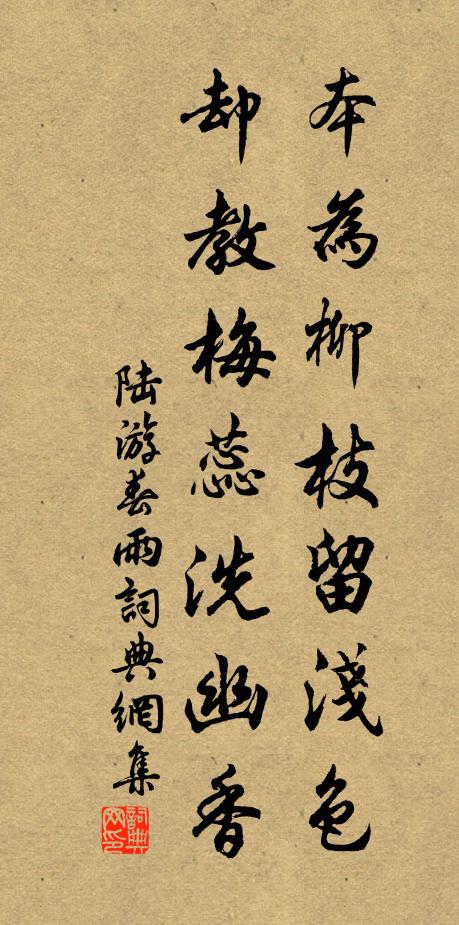 本為柳枝留淺色
却教梅蕊洗幽香
陸游春雨詞典網集
詞典网印